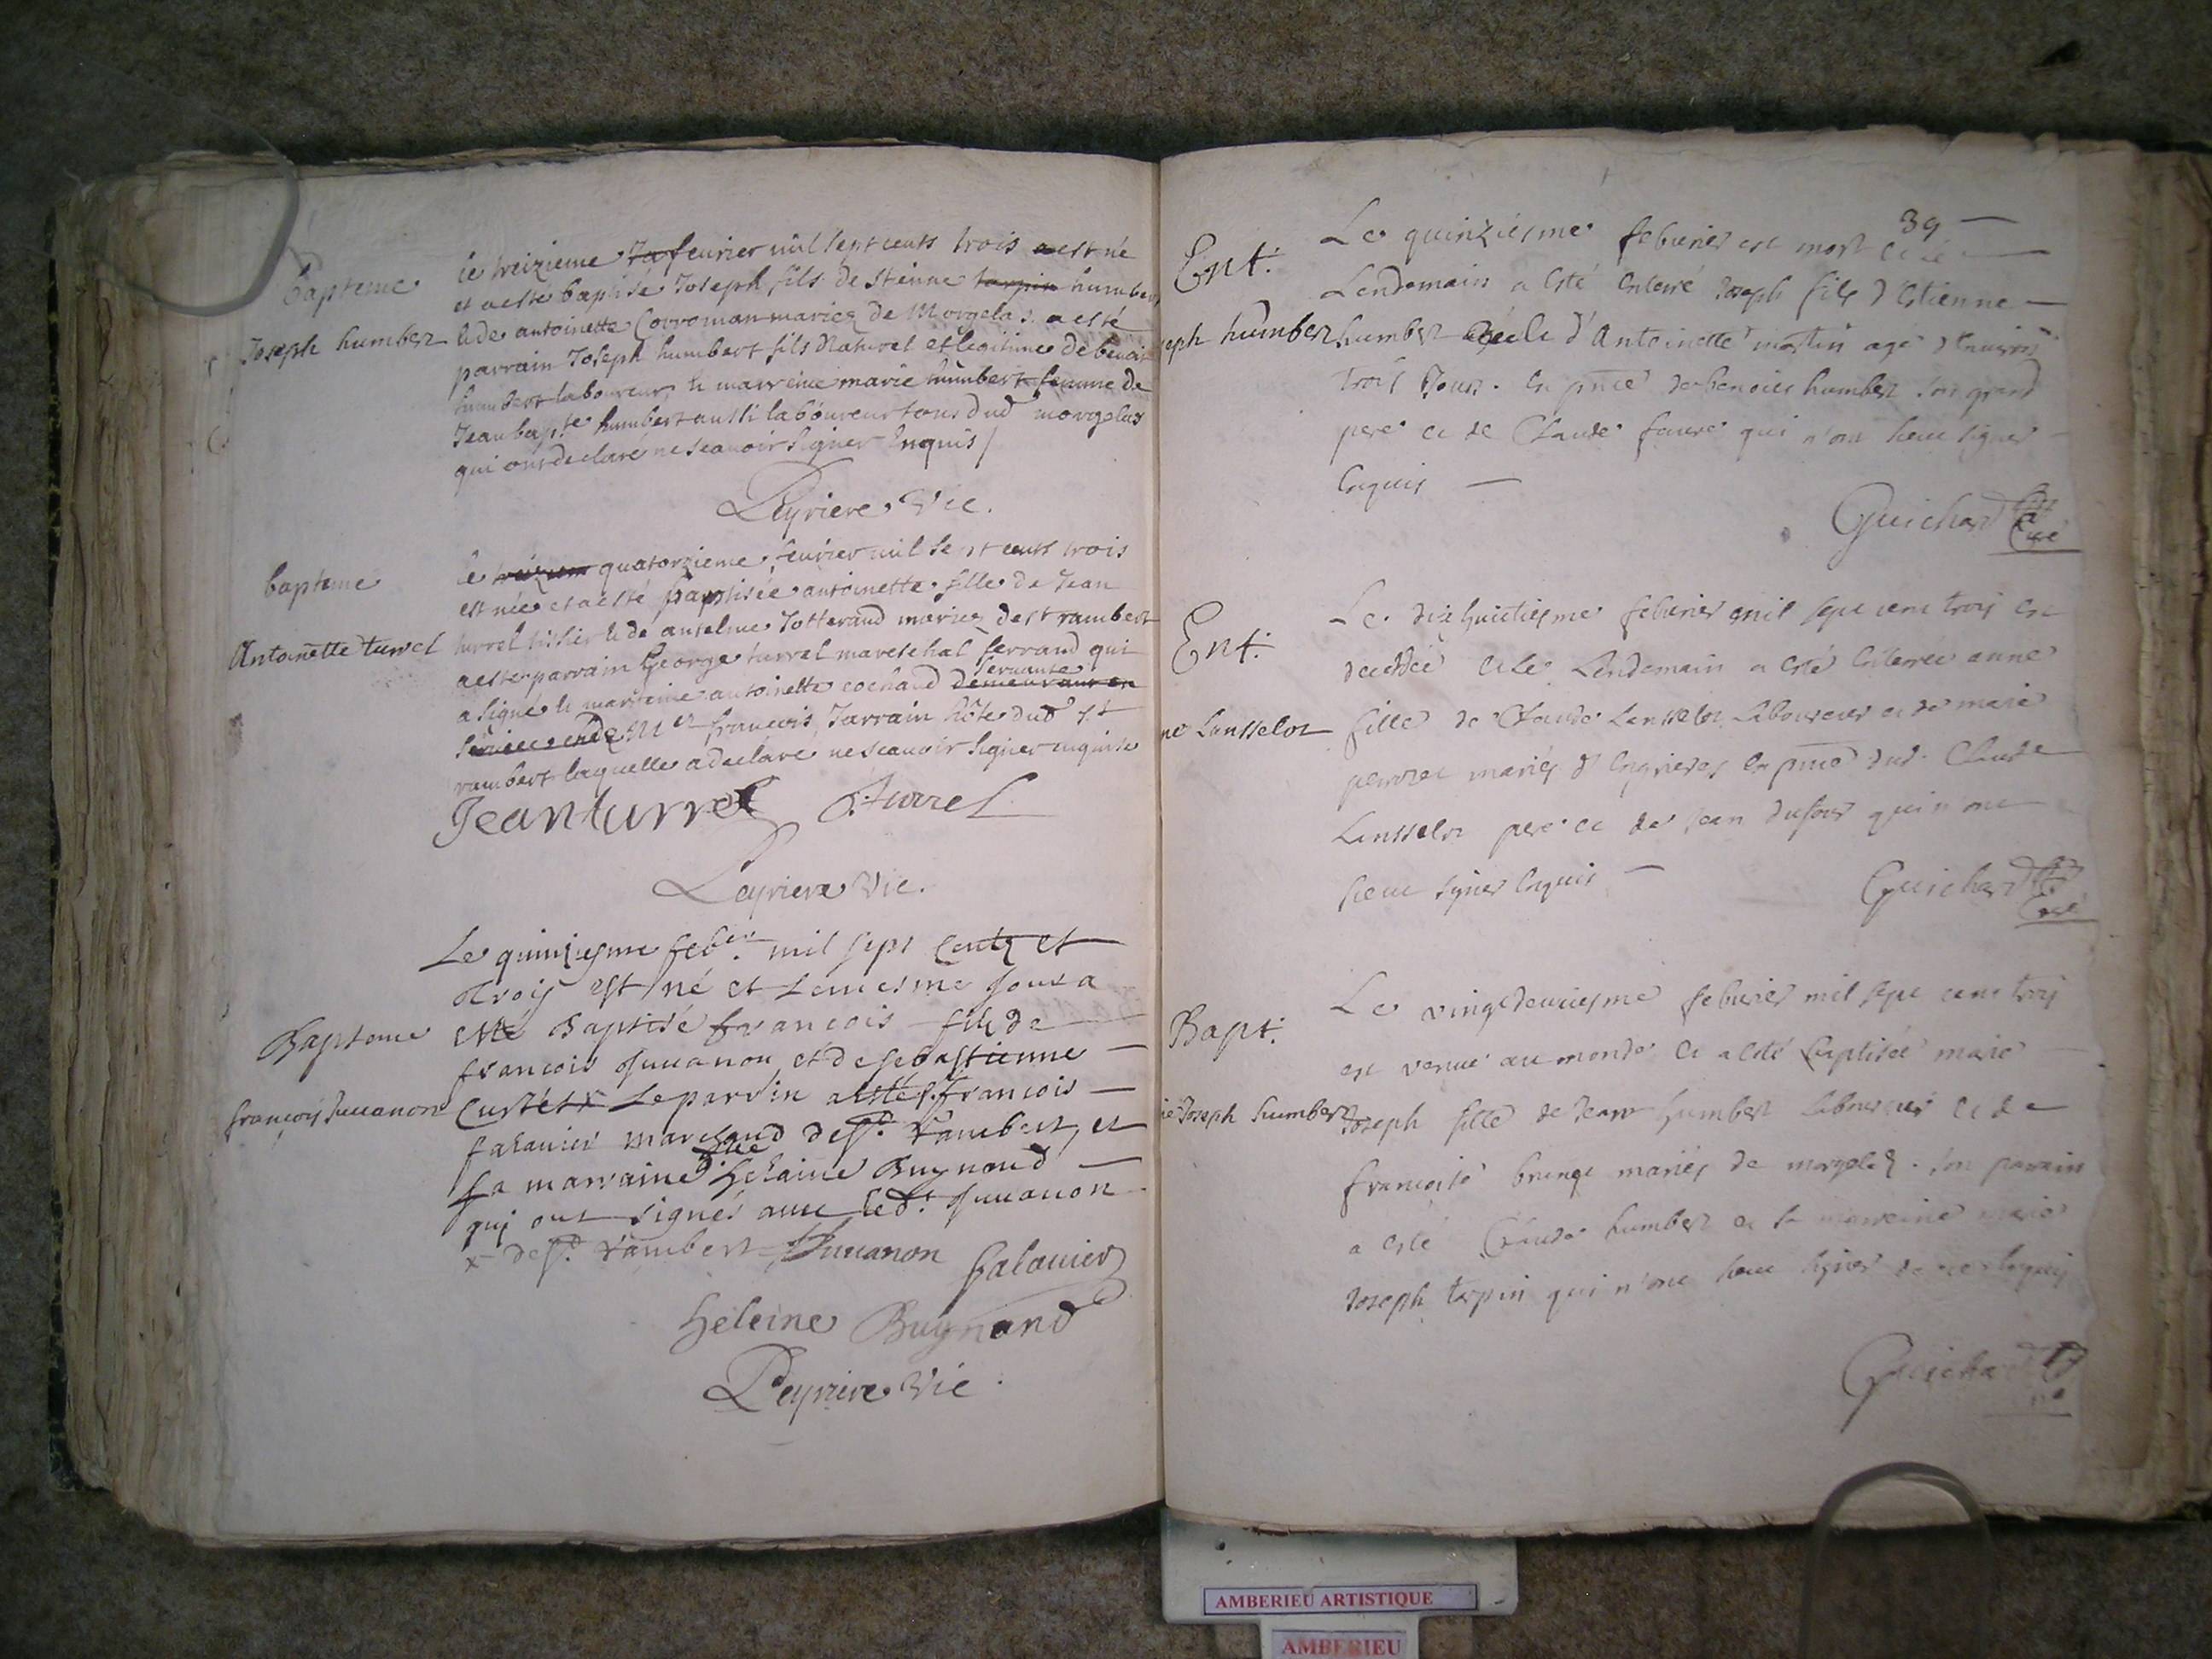 Bapteme
Joseph humbert
le treizieme feuvrier mil sept cents trois est né
et a esté baptisé Joseph fils de stienne humbert
& de antoinette mariez de Morgelas a esté
parrain Joseph humbert fils Naturel et legitime de benoit
humbert laboureur & marreine marie humbert femme de
Jean bapte humbert aussi laboureur tous dud morgelas
qui ont declaré ne scauoir signer Enquis /
Leyriere Vic.
bapteme
Antoinette turrel
le quatorzieme feurier mil sept cents trois
est née et a esté baptisée antoinette fille de Jean
turrel & de anselme Jotterand mariez de st rambert
a esté parrain George turrel mareschal ferrand qui
a signé & marreine antoinette cochand servante
de Mer francois Jarrain hôte dud st
rambert laquelle a declaré ne scauoir signer enquise
Jean turrel G. turrel
Leyriere Vic.
Bapteme
françois Juuanon
Le quinziesme feber mil sept centz et
Trois est né et Le mesme jour a
esté Baptisé francois filz de
francois Juuanon et de sebastienne
Curtet x Le parrin a esté sr francois
falauier marchand de st. Rambert, et
La marraine dlle helaine Buynand
qui ont signés auec led. Juuanon
x de st. rambert Juuanon falauier
Heleine Buynand
Leyriere Vic.
39
Ent.
Joseph humbert
Le quinziesme feburier est mort et le
Lendemain a esté enterré Joseph fils d'Estienne
humbert et d'Antoinette agé d'enuiron
trois Jours. En pnce de benoict humbert son grand
pere et de Claude faure qui n'ont sceu signer
Enquis
Guichard Curé
Ent.
ne Lansselot
Le dix huictiesme feburier mil sept cent trois est
decedée et le Lendemain a esté enterrée anne
fille de Claude Lansselot Laboureur et de marie
mariés en pnce dud. Claude
Lansselot pere et de Jean dufour qui n'ont
sceu signer Enquis
Guichard Curé
Bapt.
ie Joseph humbert
Le vingt deuxiesme feburier mil sept cent trois
est venue au monde et a esté baptisée marie
Joseph fille de Jean humbert laboureur et de
françoise mariés de morgelas. son parrain
a esté Claude humbert et la marreine marie
Joseph tarpin qui n'ont sceu signer de ce Enquis
Guichard
AMBERIEU ARTISTIQUE
AMBERIEU